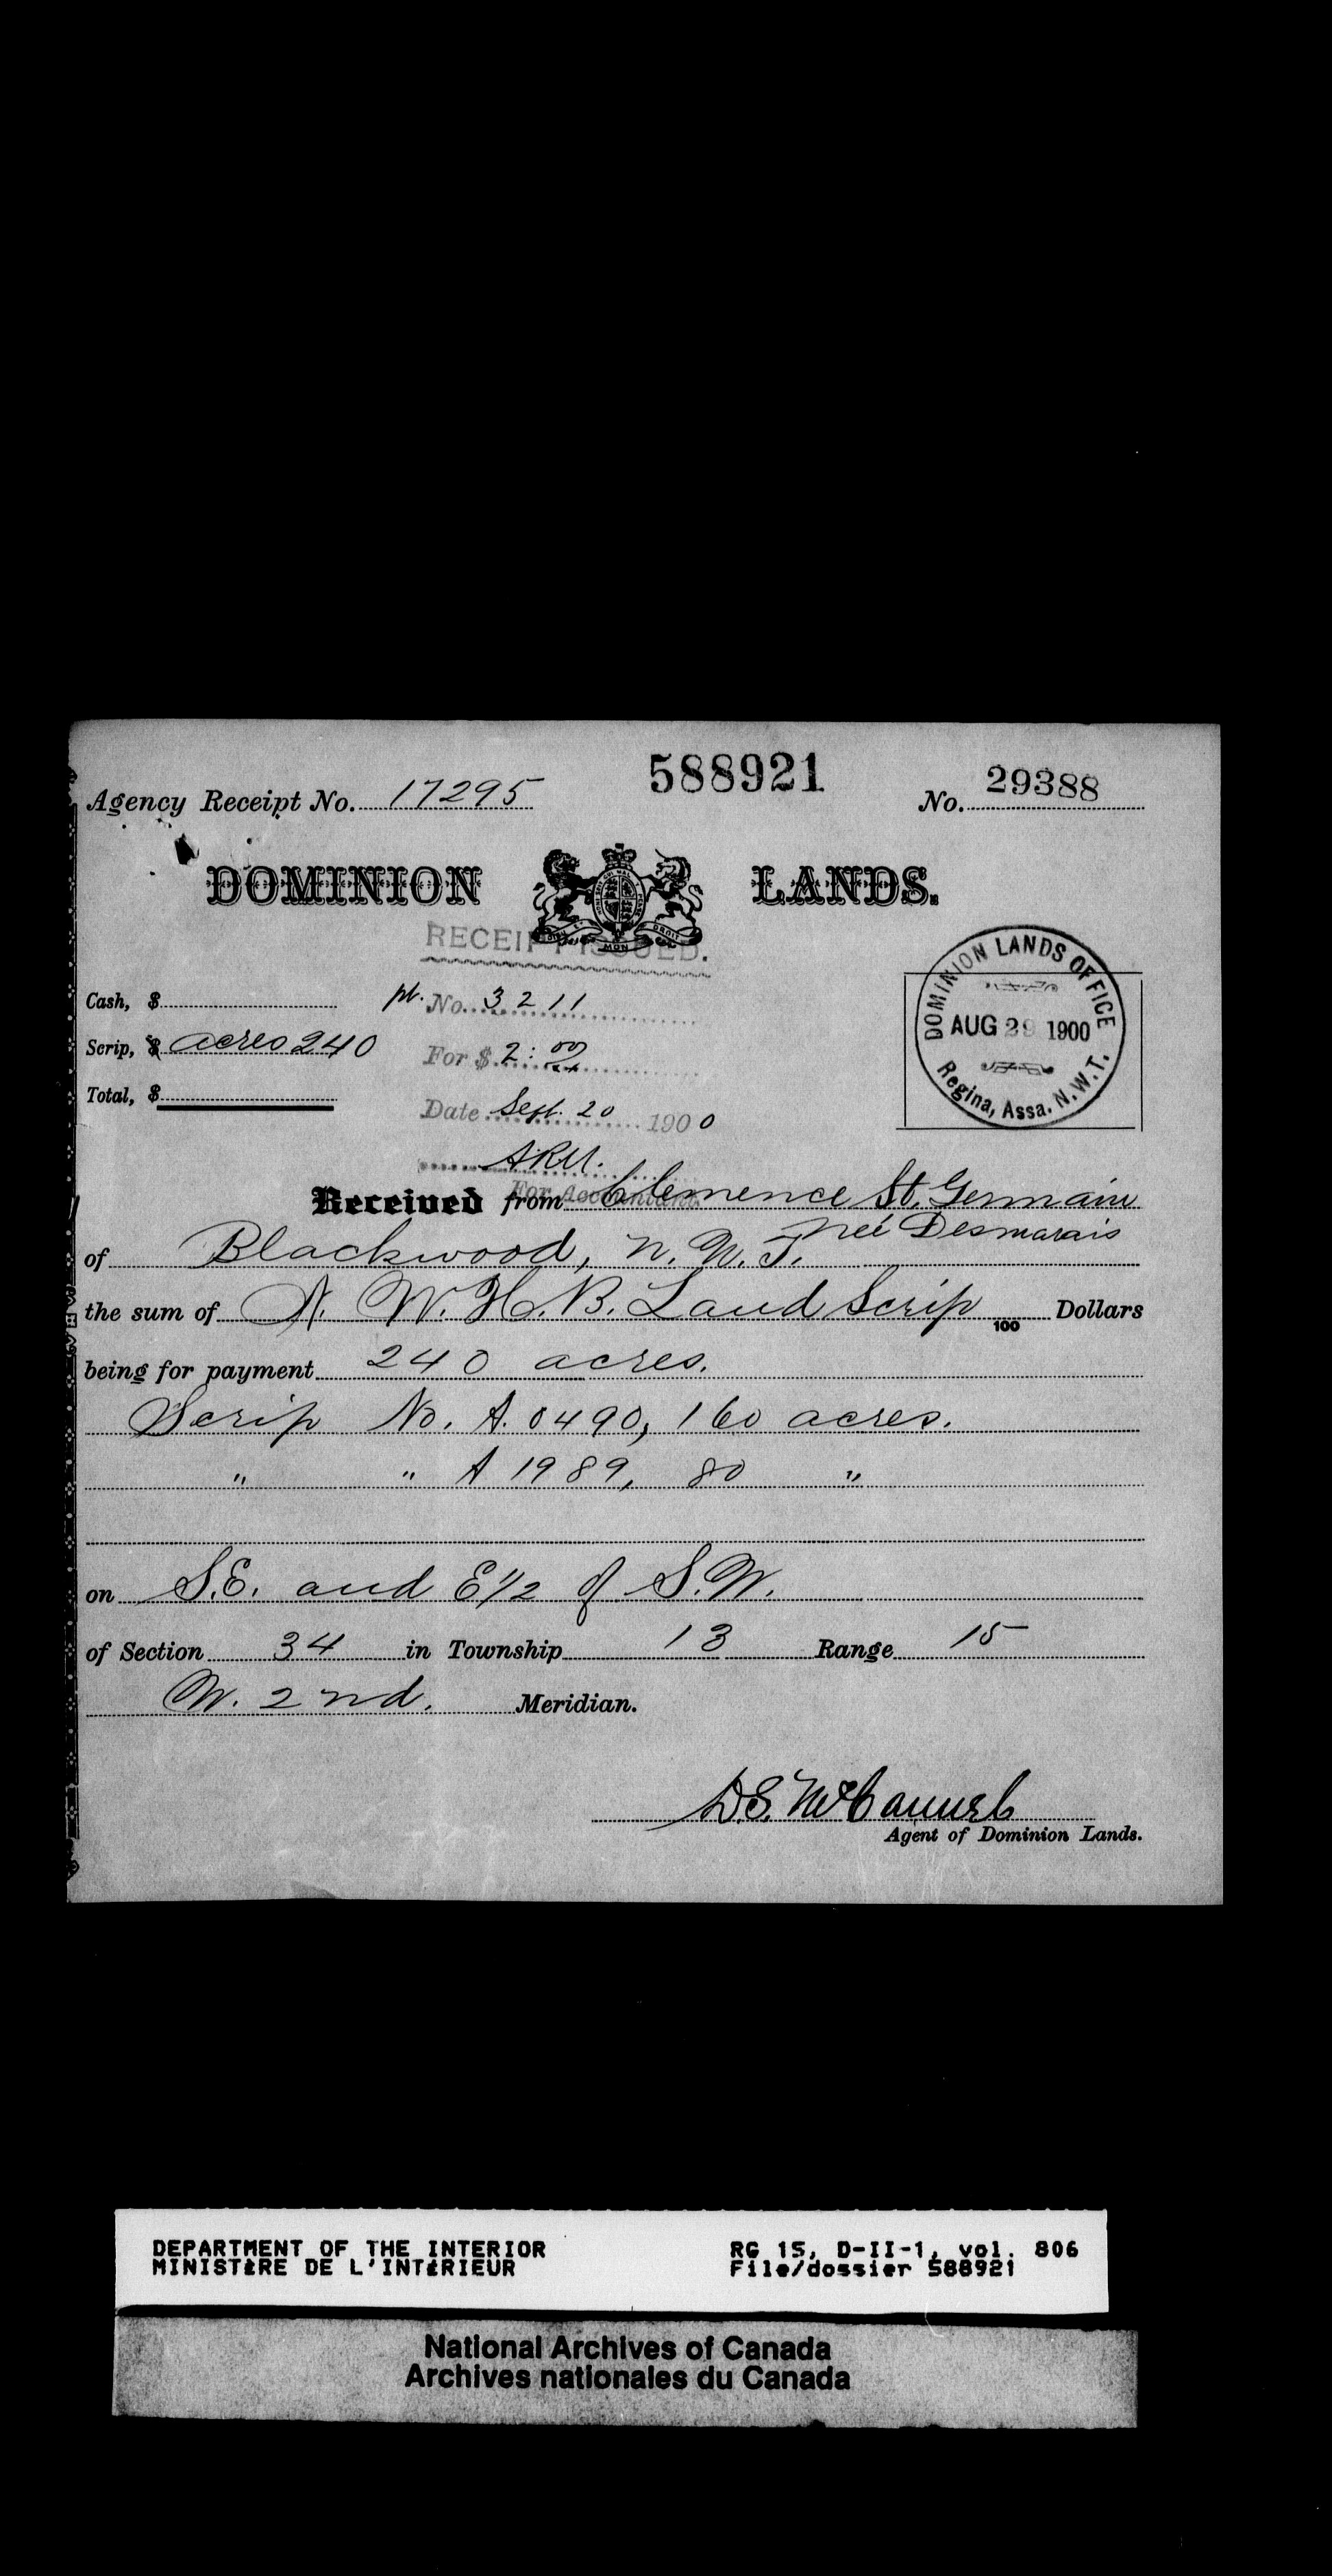 588921
Agency Receipt No. 17295 No. 29388
DOMINION LANDS.
RECEIPT ISSUED.
DOMINION LANDS OFFICE
AUG 29 1900
Regina, Assa. N.W.T.
Cash, $
pt. No. 3211
Scrip, $ acres 240
For $ 2:00
Total, $
Date Sept. 20 1900
For Accountant
Received from Clemence St. Germain
neé Desmarais
of Blackwood, N. W. T.
the sum of N. W. H. B. Land Scrip 100 Dollars
being for payment 240 acres.
Scrip No. A. 0490, 160 acres.
" " A 1989, 80 "
on S.E. and E 1/2 of S.W.
of Section 34 in Township 13 Range 15
W. 2nd. Meridian.
D.S. McCannel
Agent of Dominion Lands.
DEPARTMENT OF THE INTERIOR RG 15, D-II-1, vol. 806
MINISTÈRE DE L'INTÉRIEUR File/dossier 588921
National Archives of Canada
Archives nationales du Canada